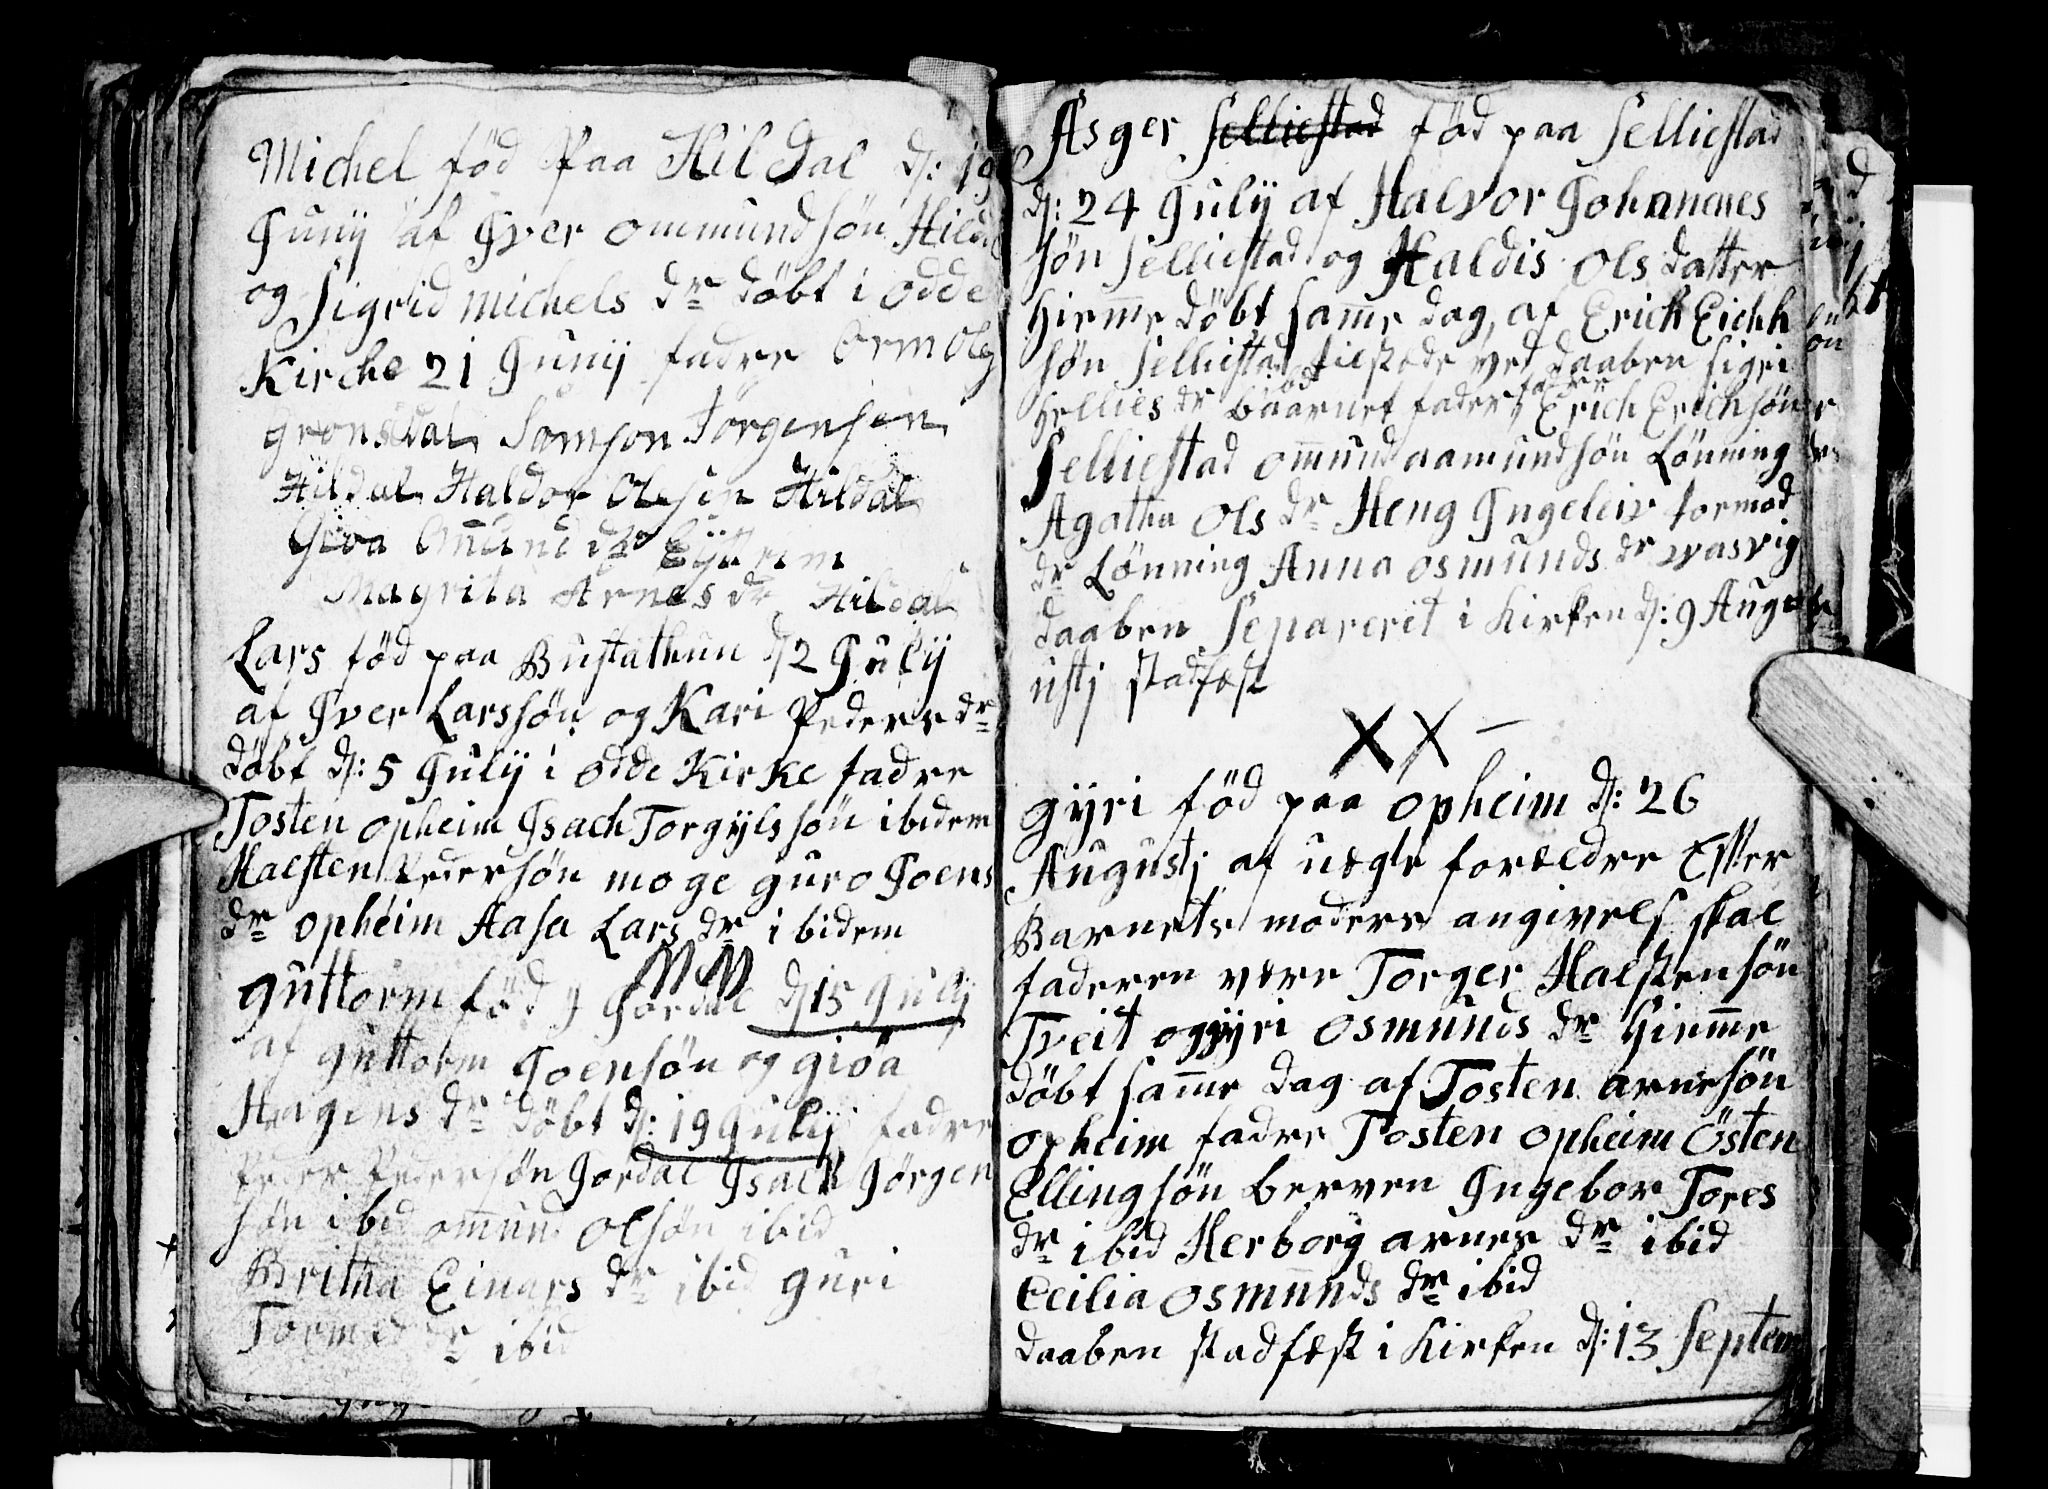 Michel föd Paa Hildal d: 19
Junij af Iver ommundsön Hildal
og Sigrid michels dr döbt i odde
Kirche 21 Junij fadre Orm Ols
Gronsdal Samson Jörgensen
Hildal Haldor Olesen Hildal
Giöa Omund dr Eytrem
Magrita Arnes dr Hildal
Lars föd paa Bustathun d 2 Julij
af Iver Larssön og Kari Peders dr
döbt d: 5 Julij i odde Kirke fadre
Tosten opheim Isach Torgijlssön ibidem
Halsten Pedersön moge guro Joens
dr opheim Aasa Lars dr ibidem
guttorm föd J Jordal d 15 Julij
af guttorm Joensön og giöa
Hagens dr döbt d: 19 Julij fadre
Peder Pedersön Jordal Isach Jörgen
sön ibid omund Olsön ibid
Britha Einars dr ibid guri
Tormod dr ibid
Asger Selliestad föd paa Selliestad
d: 24 Julij af Halvor Johannes
sön Selliestad og Haldis Ols datter
hieme döbt same dag, af Erich Eichh
sön Selliestad tilstede ved daaben sigri
Hellies dr baarnet fader fadre Erich Erichsön
Selliestad omund aamundsön Lönning
Agatha Ols dr Heng Ingeleiv tormod
dr Lönning Anna osmunds dr vasvig
daaben Separerit i Kirken d: 9 Aug
ustj stadfest
XX –
gyri föd paa opheim d: 26
Augustj af uegte foreldre Efter
Barnets moders angivels skal
faderen vere Torger Halstensön
Tveit og gyri osmunds dr hieme
döbt same dag af Tosten arnesön
opheim fadre Tosten opheim Östen
Ellingsön berven Ingebor Tores
dr ibid Herborg arnes dr ibid
Cecilia osmunds dr ibid
daaben stadfest i Kirken d: 13 Septem